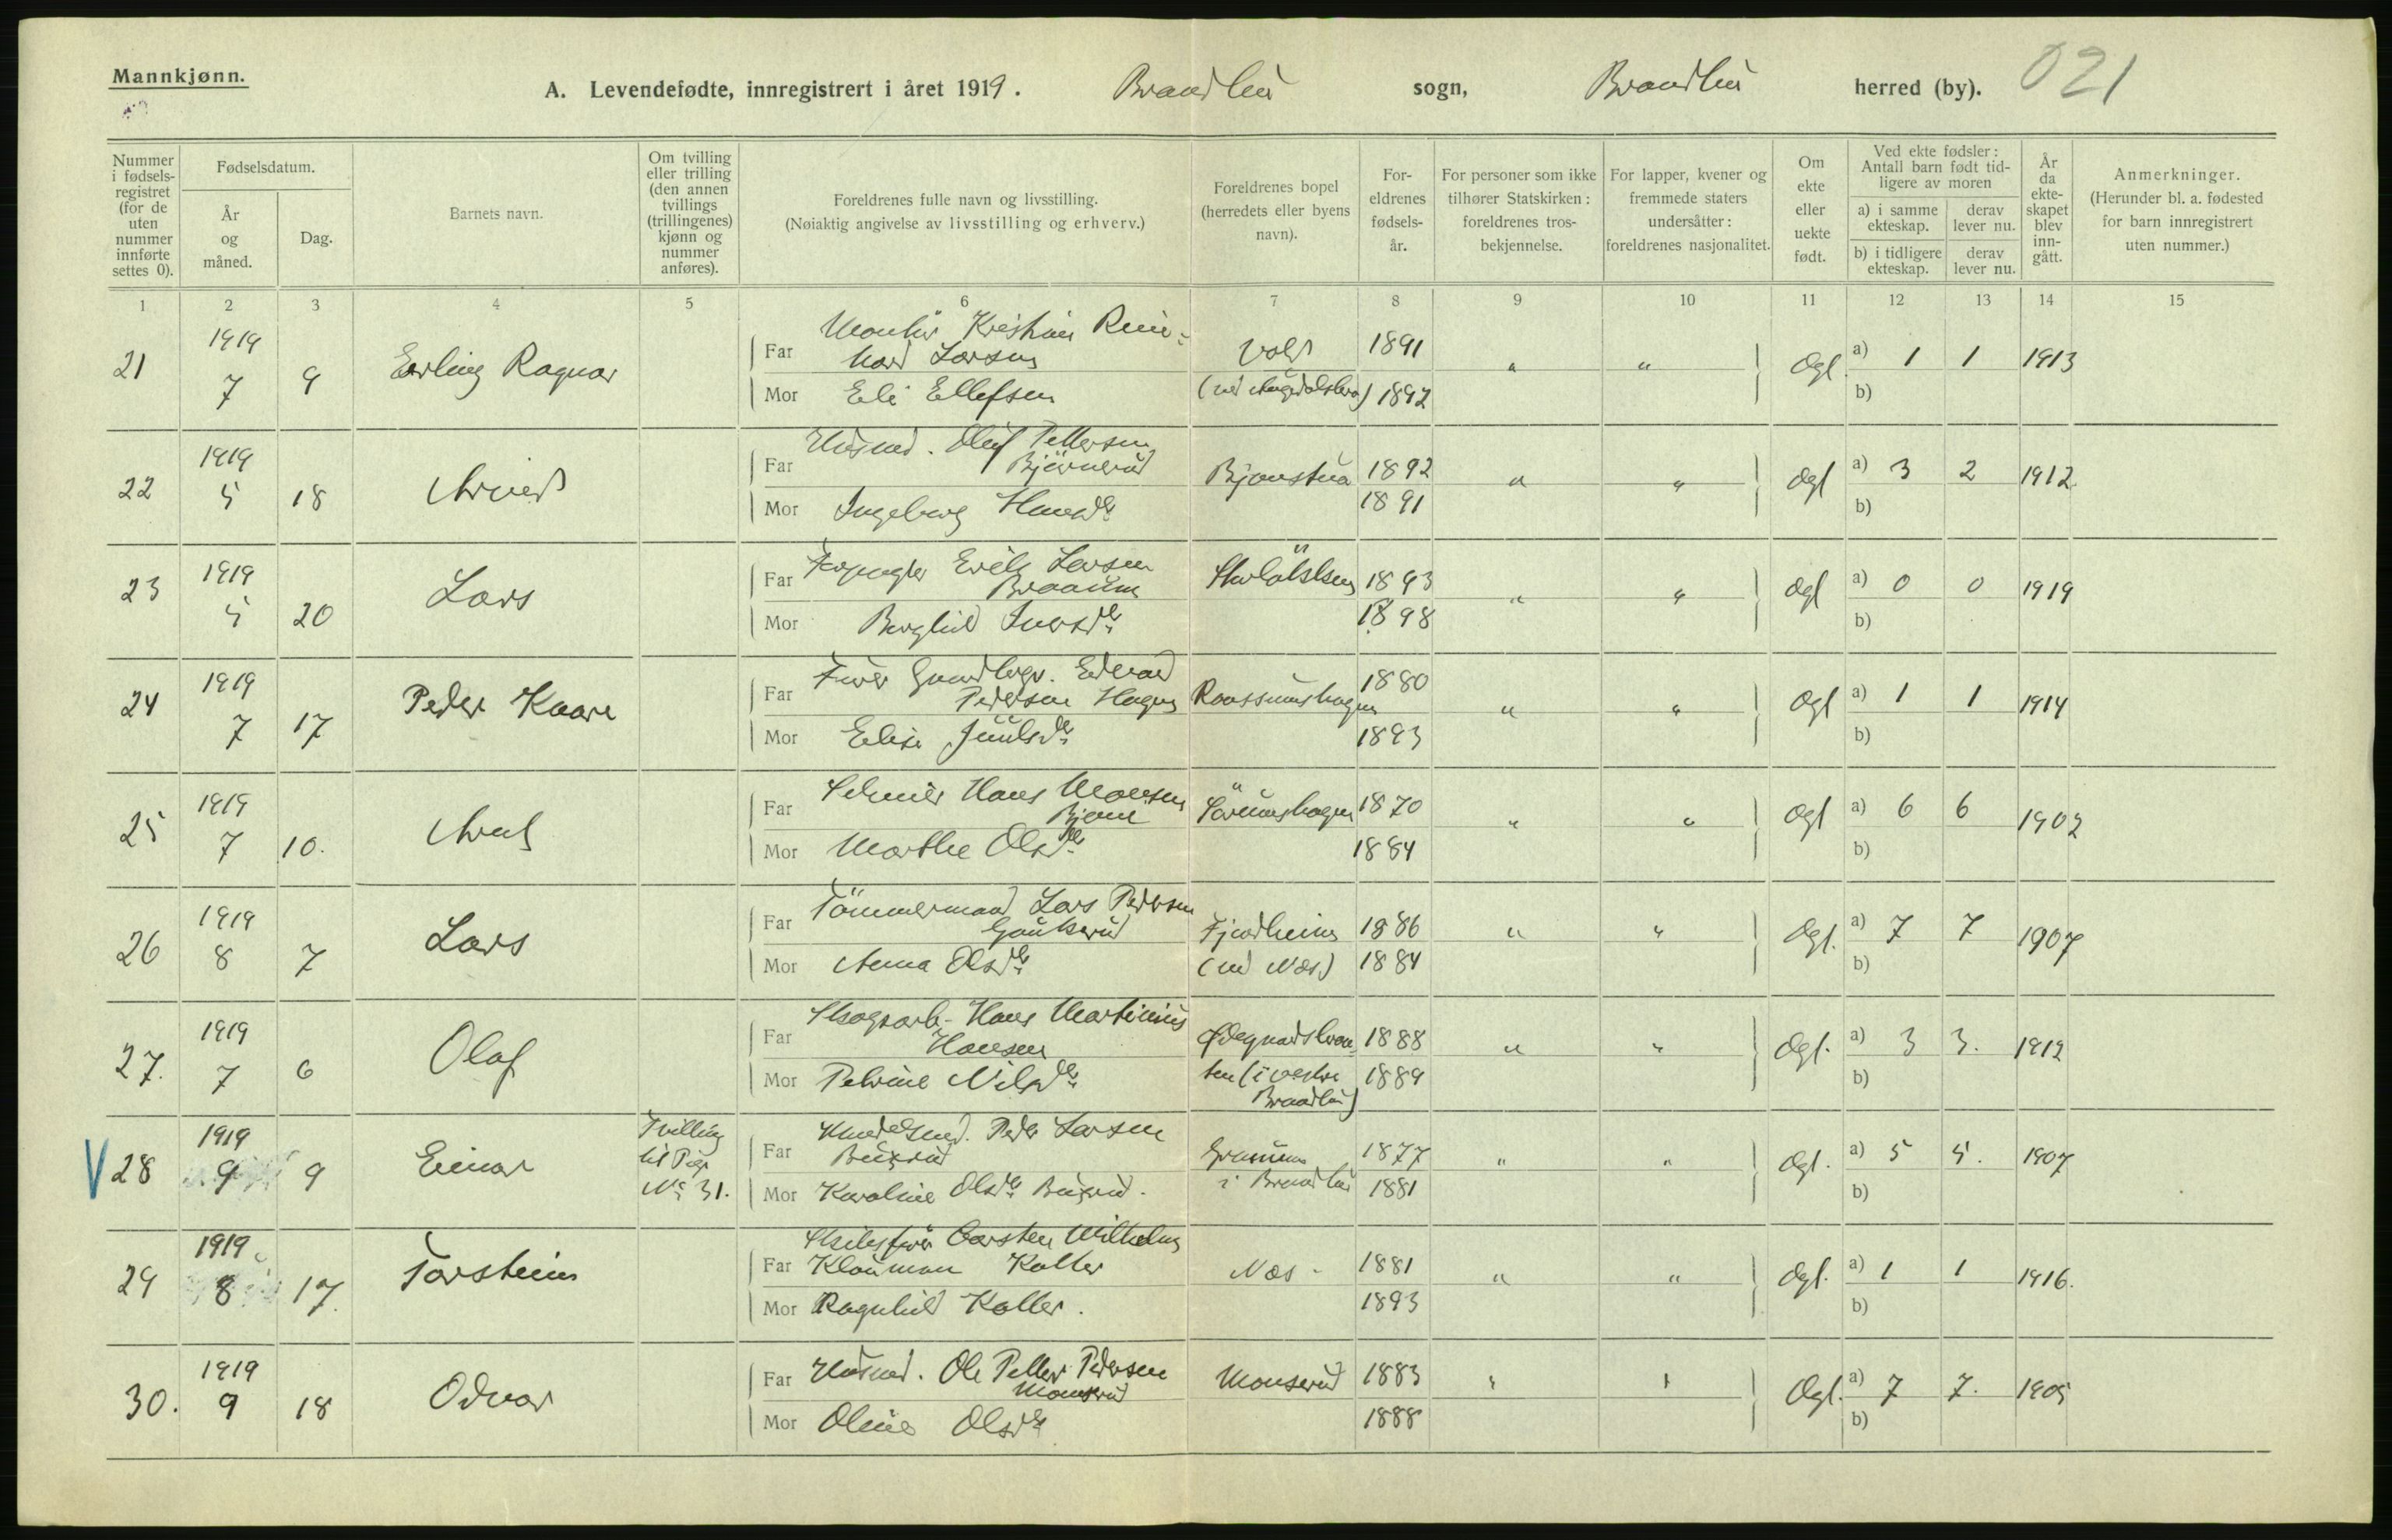 Mannkjønn.
A. Levendefødte, innregistrert i året 1919. Brandbu sogn, Brandbu herred (by). 021
Nummer i fødsels-registret (for de uten nummer innførte settes 0).
Fødselsdatum.
År og måned.
Dag.
Barnets navn.
Om tvilling eller trilling (den annen tvillings (trillingenes) kjønn og nummer anføres).
Foreldrenes fulle navn og livsstilling.
(Nøiaktig angivelse av livsstilling og erhverv.)
Foreldrenes bopel (herredets eller byens navn).
For-eldrenes fødsels-år.
For personer som ikke tilhører Statskirken: foreldrenes tros-bekjennelse.
For lapper, kvener og fremmede staters undersåtter: foreldrenes nasjonalitet.
Om ekte eller uekte født.
Ved ekte fødsler: Antall barn født tid-ligere av moren
a) i samme ekteskap. derav lever nu.
b) i tidligere ekteskap. derav lever nu.
År da ekte-skapet blev inn-gått.
Anmerkninger.
(Herunder bl. a. fødested for barn innregistrert uten nummer.)
1 2 3 4 5 6 7 8 9 10 11 12 13 14 15
21 1919 7 9 Erling Ragnar
Far Montør Kristian Rein-
hard Larsen Vold 1891 " " Ogl. a) 1 1 1913
Mor Eli Ellefsen 1892 b)
22 1919 5 18 Arvid
Far Husmd. Oluf Pettersen
Bjørnerud Bjonstua 1892 " " Ogl a) 3 2 1912
Mor Ingeborg Hansdtr 1891 b)
23 1919 5 20 Lars
Far Erik Larsen
Braaum 1893 " " Ogl a) 0 0 1919
Mor Borghild Iversdtr 1898 b)
24 1919 7 17 Peder Kaare
Far Edvard
Pedersen Hagen Raassumshagen 1880 " " Ogl a) 1 1 1914
Mor Elise Juulsdtr 1893 b)
25 1919 7 10. Arent
Far Hans Monsen
Bjone Sørumshagen 1870 " " Ogl a) 6 6 1902
Mor Marthe Olsdtr 1884 b)
26 1919 8 7 Lars
Far Tömmermand Lars Pedersen
Gaukerud Fjordheim 1886 " " Ogl. a) 7 7 1907
Mor Anna Olsdtr (ved Næs) 1884 b)
27. 1919 7 6 Olaf
Far Skogsarb. Hans Martinius
Hansen 1888 " " Ogl. a) 3 3. 1912
Mor Petrine Nilsdtr (i vestre 1889 b)
Brandbu)
V 28 1919 9 9 Einar Tvilling
til Pige
No 31.
Far Peder Larsen
Granum 1877 " " Ogl. a) 5 5. 1907
Mor Karoline Olsdtr i Brandbu 1881 b)
29 1919 8 17. Torstein
Far Carsten Wilhelm
Klouman Koller Næs. 1881 " " Ogl. a) 1 1 1916.
Mor Ragnhild Koller. 1893 b)
30. 1919 9 18 Odvar
Far Husmd. Ole Petter Pedersen
Monserud Monserud 1883 " " Ogl. a) 7 7. 1905
Mor Oline Olsdtr 1888 b)